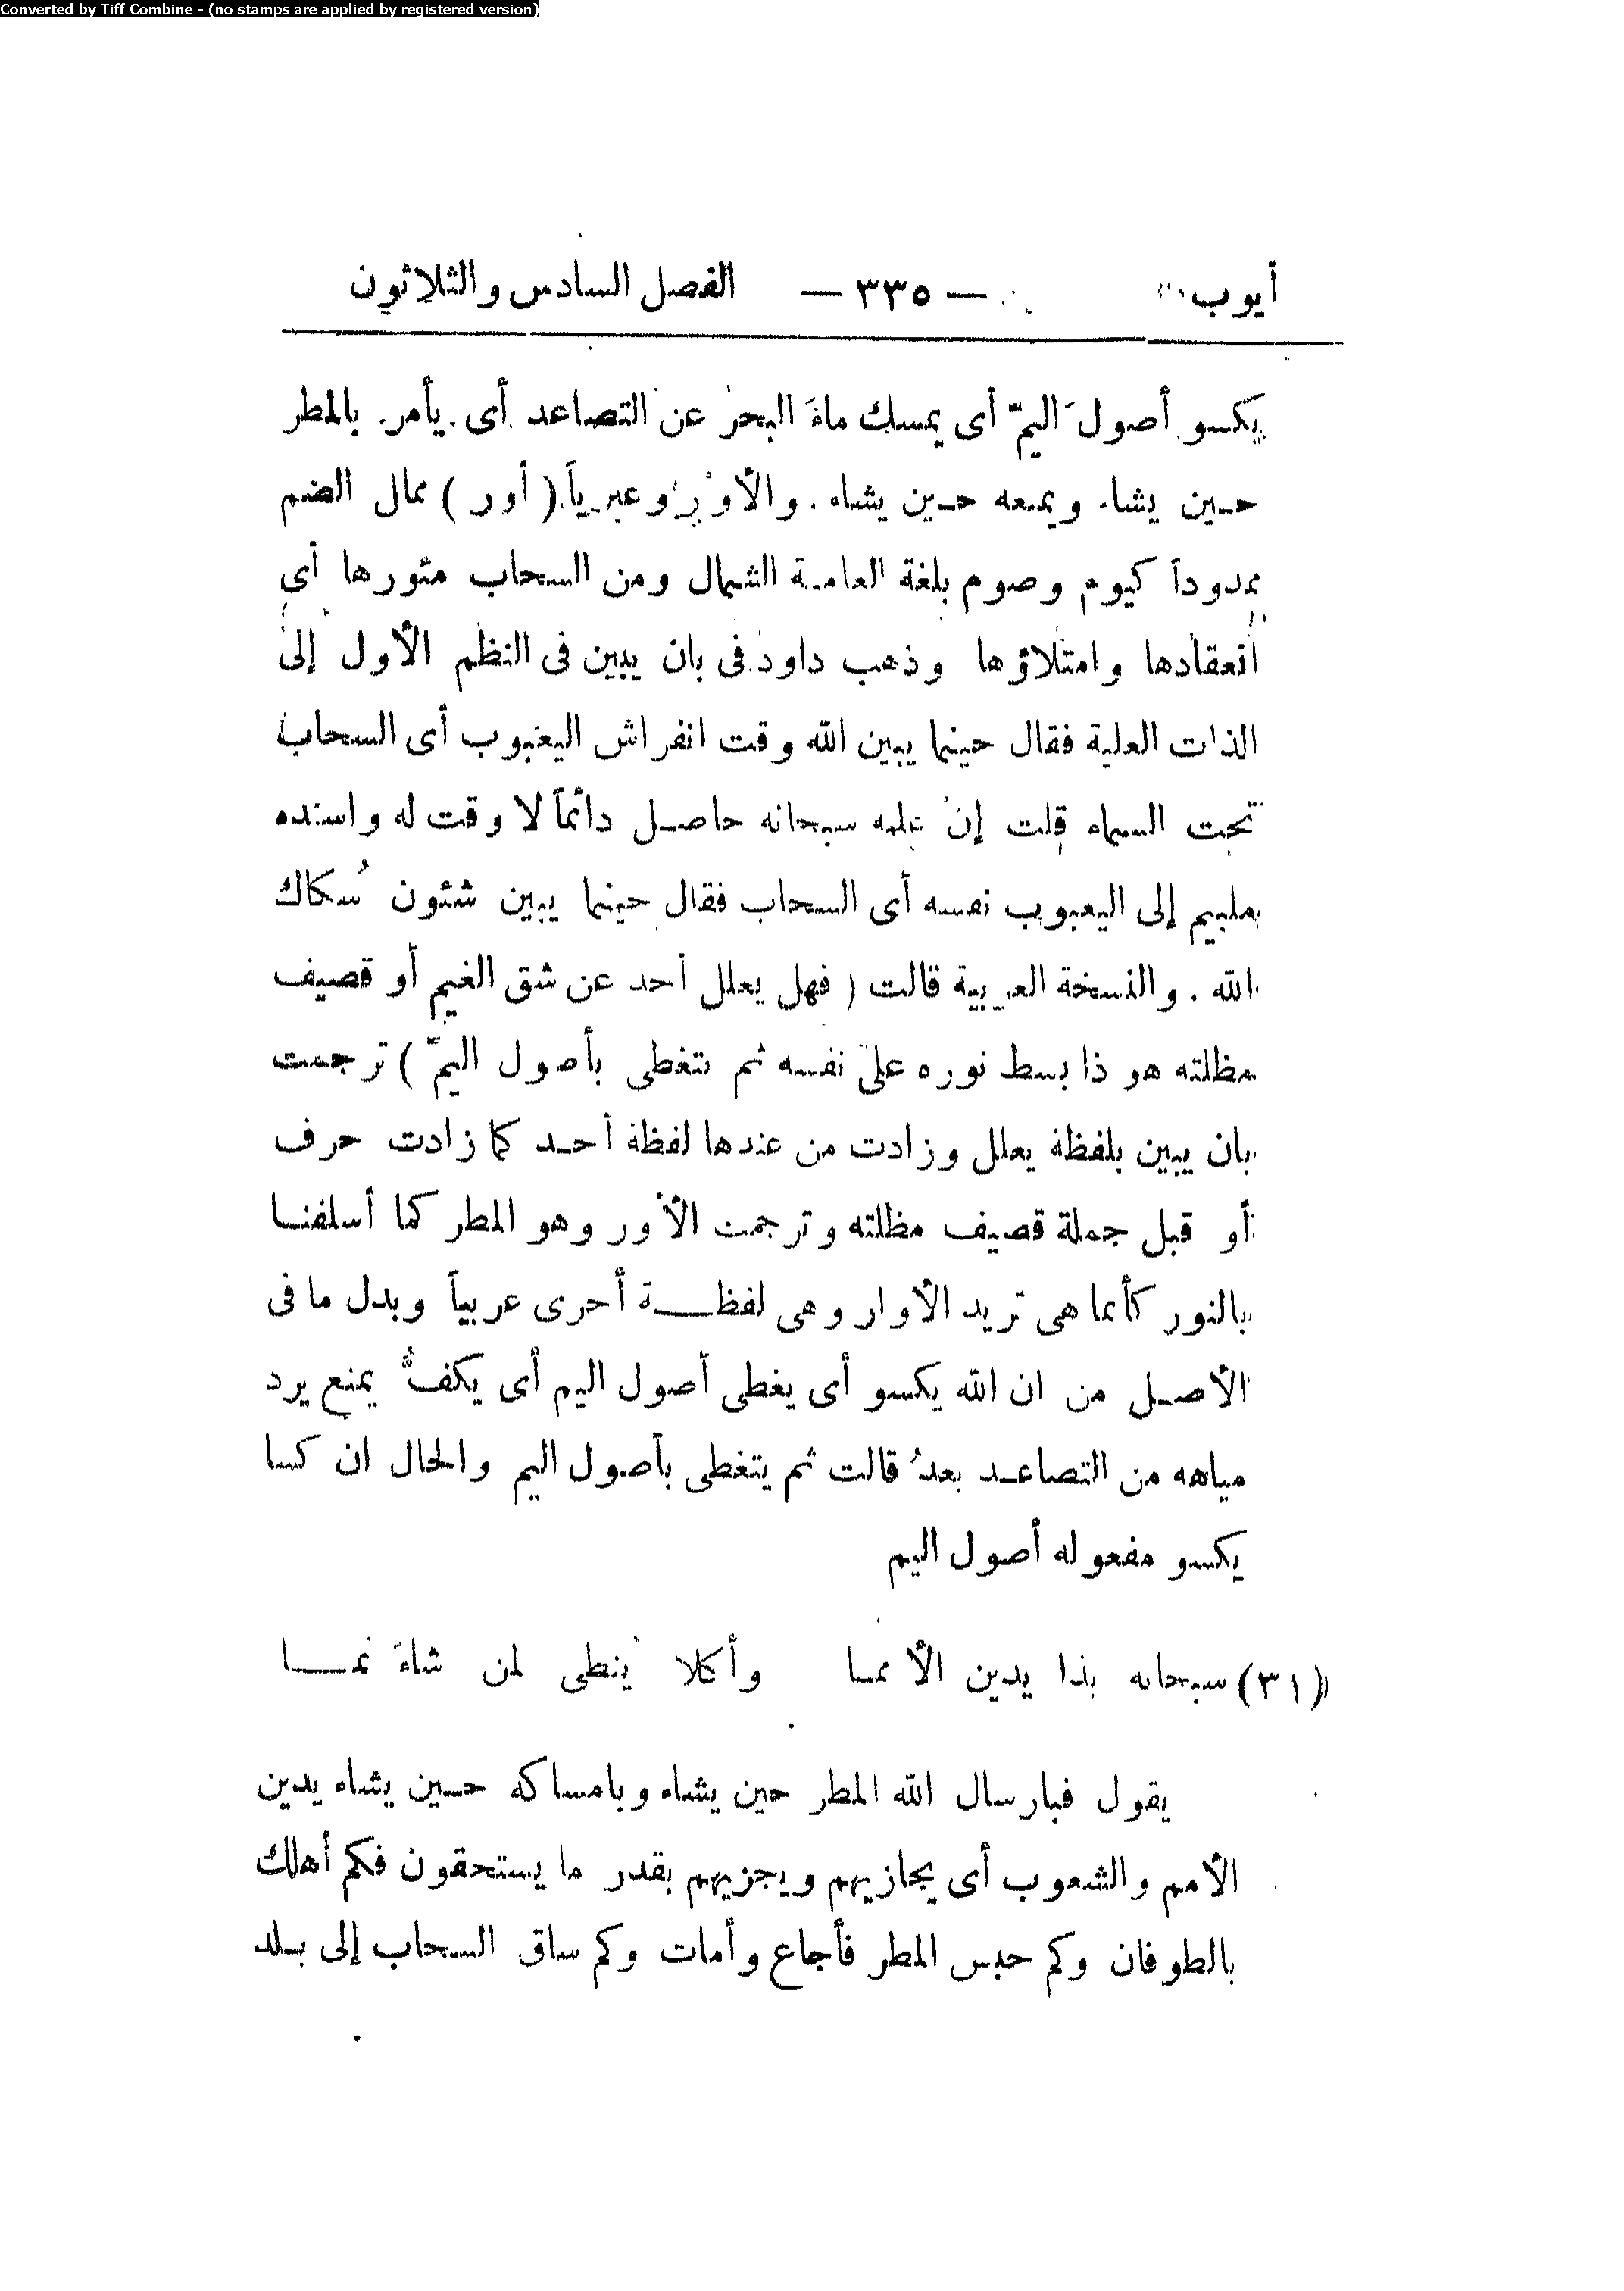 Converted by Tiff Combine - (no stamps are applied by registered version)
أيوب — ٣٣٥ — الفصل السادس والثلاثون
يكسو أصولَ اليمّ أى يمسك ماءَ البحر عن التصاعد أى يأمر بالمطر
حين يشاء ويمنعه حين يشاء . والأوْر وعبرياً ( أور ) ممال الضم
ممدوداً كيوم وصوم بلغة العامة الشمال ومن السحاب مئورها أى
انعقادها وامتلاؤها وذهب داود فى بان يبين فى النظم الأول إلى
الذات العلية فقال حينما يبين الله وقت انفراش اليعبوب أى السحاب
تحت السماء قلت إن علمه سبحانه حاصل دائماً لا وقت له واسنده
ملبيم إلى اليعبوب نفسه أى السحاب فقال حينما يبين شئون سُكاك
الله . والنسخة العربية قالت ( فهل يعلل أحد عن شق الغيم أو قصيف
مظلته هو ذا بسط نوره على نفسه ثم تتغطى بأصول اليمّ ) ترجمت
بان يبين بلفظة يعلل وزادت من عندها لفظة أحد كما زادت حرف
أو قبل جملة قصيف مظلته وترجمت الأور وهو المطر كما أسلفنا
بالنور كأنما هى تريد الأوار وهى لفظة أحرى عربياً وبدل ما فى
الأصل من ان الله يكسو أى يغطى أصول اليم أى يكفُّ يمنع يرد
مياهه من التصاعد بعدُ قالت ثم يتغطى بأصول اليم والحال ان كسا
يكسو مفعوله أصول اليم
(٣١) سبحانه بذا يدين الأمما وأكلا ينطى لمن شاءَ نما
يقول فبارسال الله المطر حين يشاء وبامساكه حين يشاء يدين
الأمم والشعوب أى يجازيهم ويجزيهم بقدر ما يستحقون فكم أهلك
بالطوفان وكم حبس المطر فأجاع وأمات وكم ساق السحاب إلى بلد